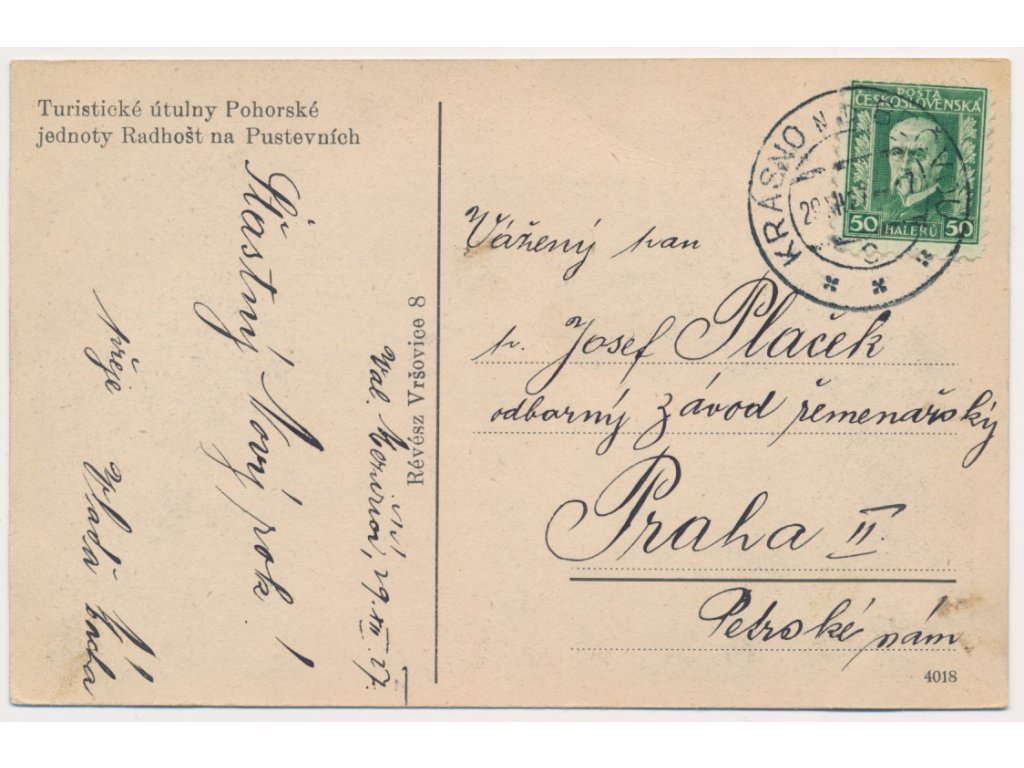 Turistické útulny Pohorské
jednoty Radhošt na Pustevních
Šťastný Nový rok!
přeje Vláďa
Val. Meziříčí, 29. XII. 27.
Révész Vršovice 8
POSTA
ČESKOSLOVENSKÁ
50 HALÉRŮ 50
KRÁSNO N.
Vážený pan
p. Josef Plaček
odborný závod řemenářský
Praha II.
Petrské nám
4018